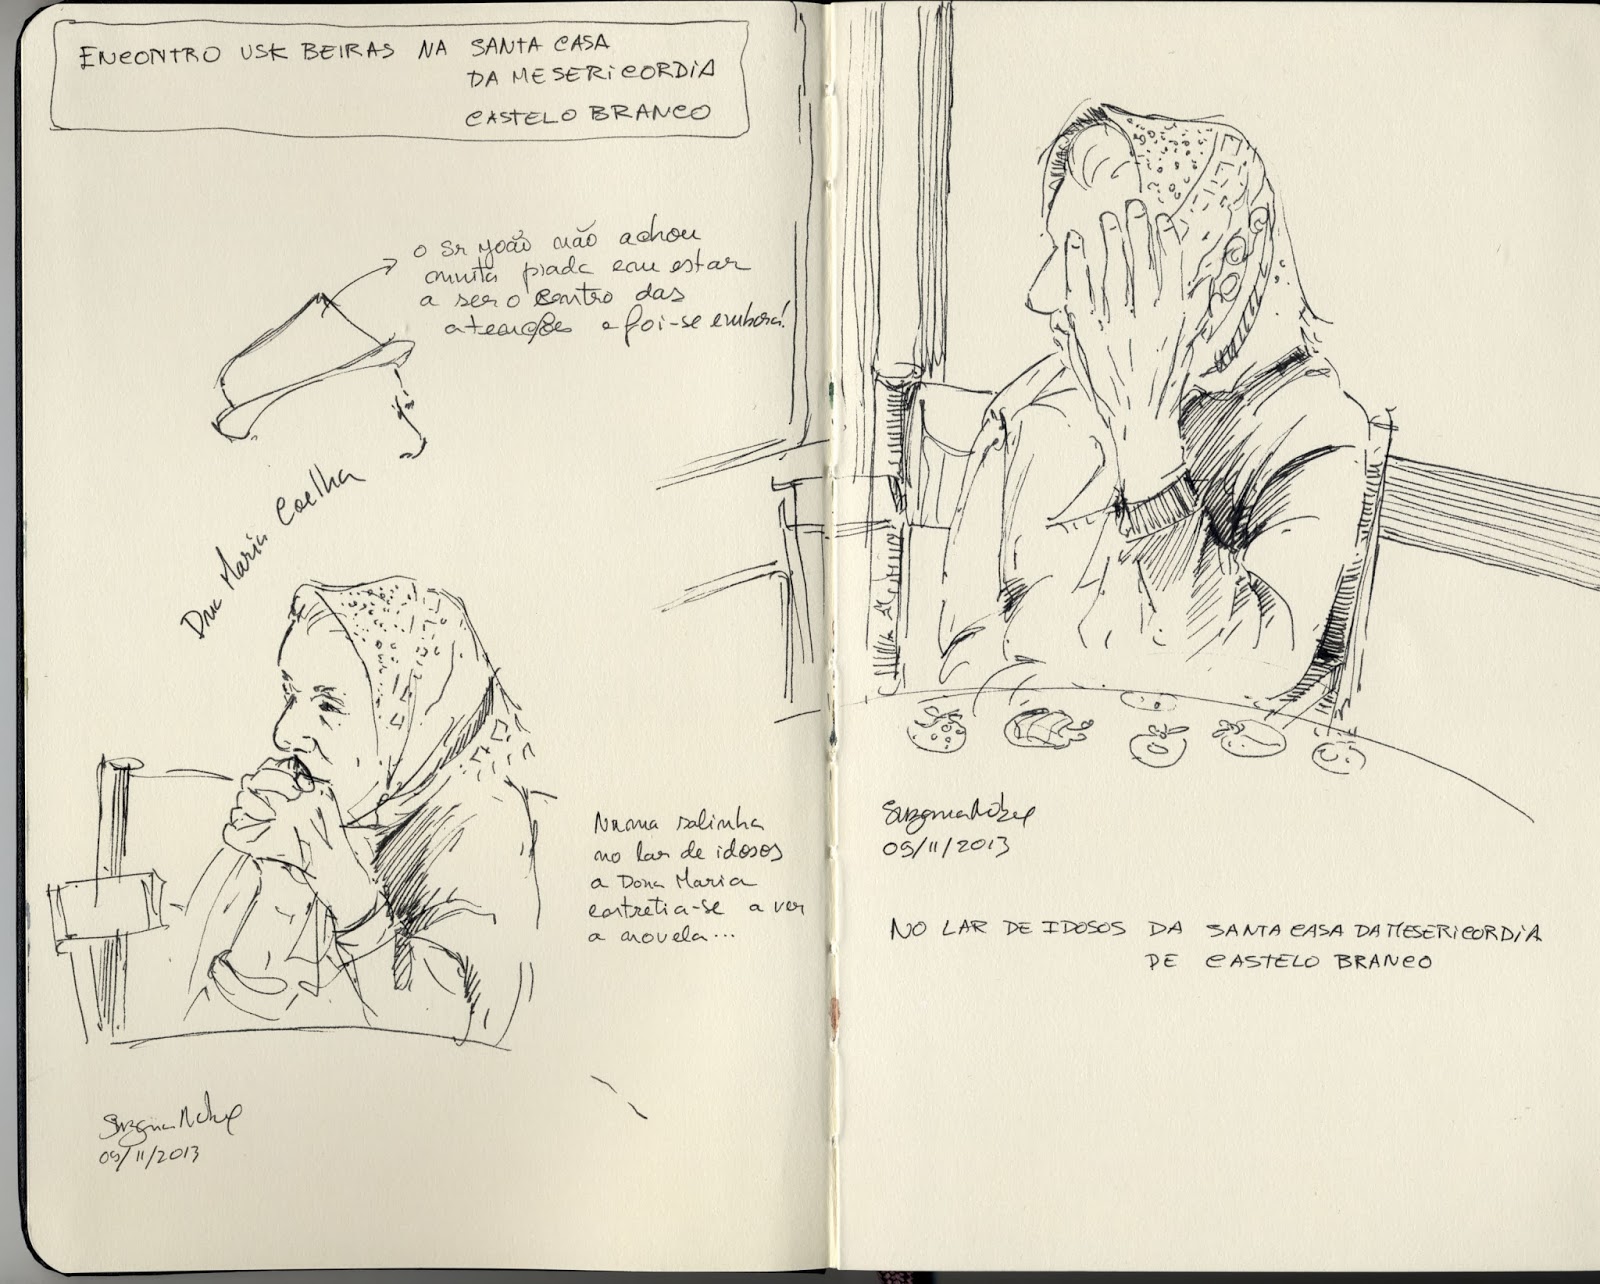 ENCONTRO USK BEIRAS NA SANTA CASA
DA MESERICORDIA
CASTELO BRANCO
O Sr João não achou
muita piada em estar
a ser o centro das
atenções e foi-se embora!
Dna Maria Coelha
Numa salinha
no lar de idosos
a Dona Maria
entretia-se a ver
a novela...
09/11/2013
09/11/2013
NO LAR DE IDOSOS DA SANTA CASA DA MESERICORDIA
DE CASTELO BRANCO